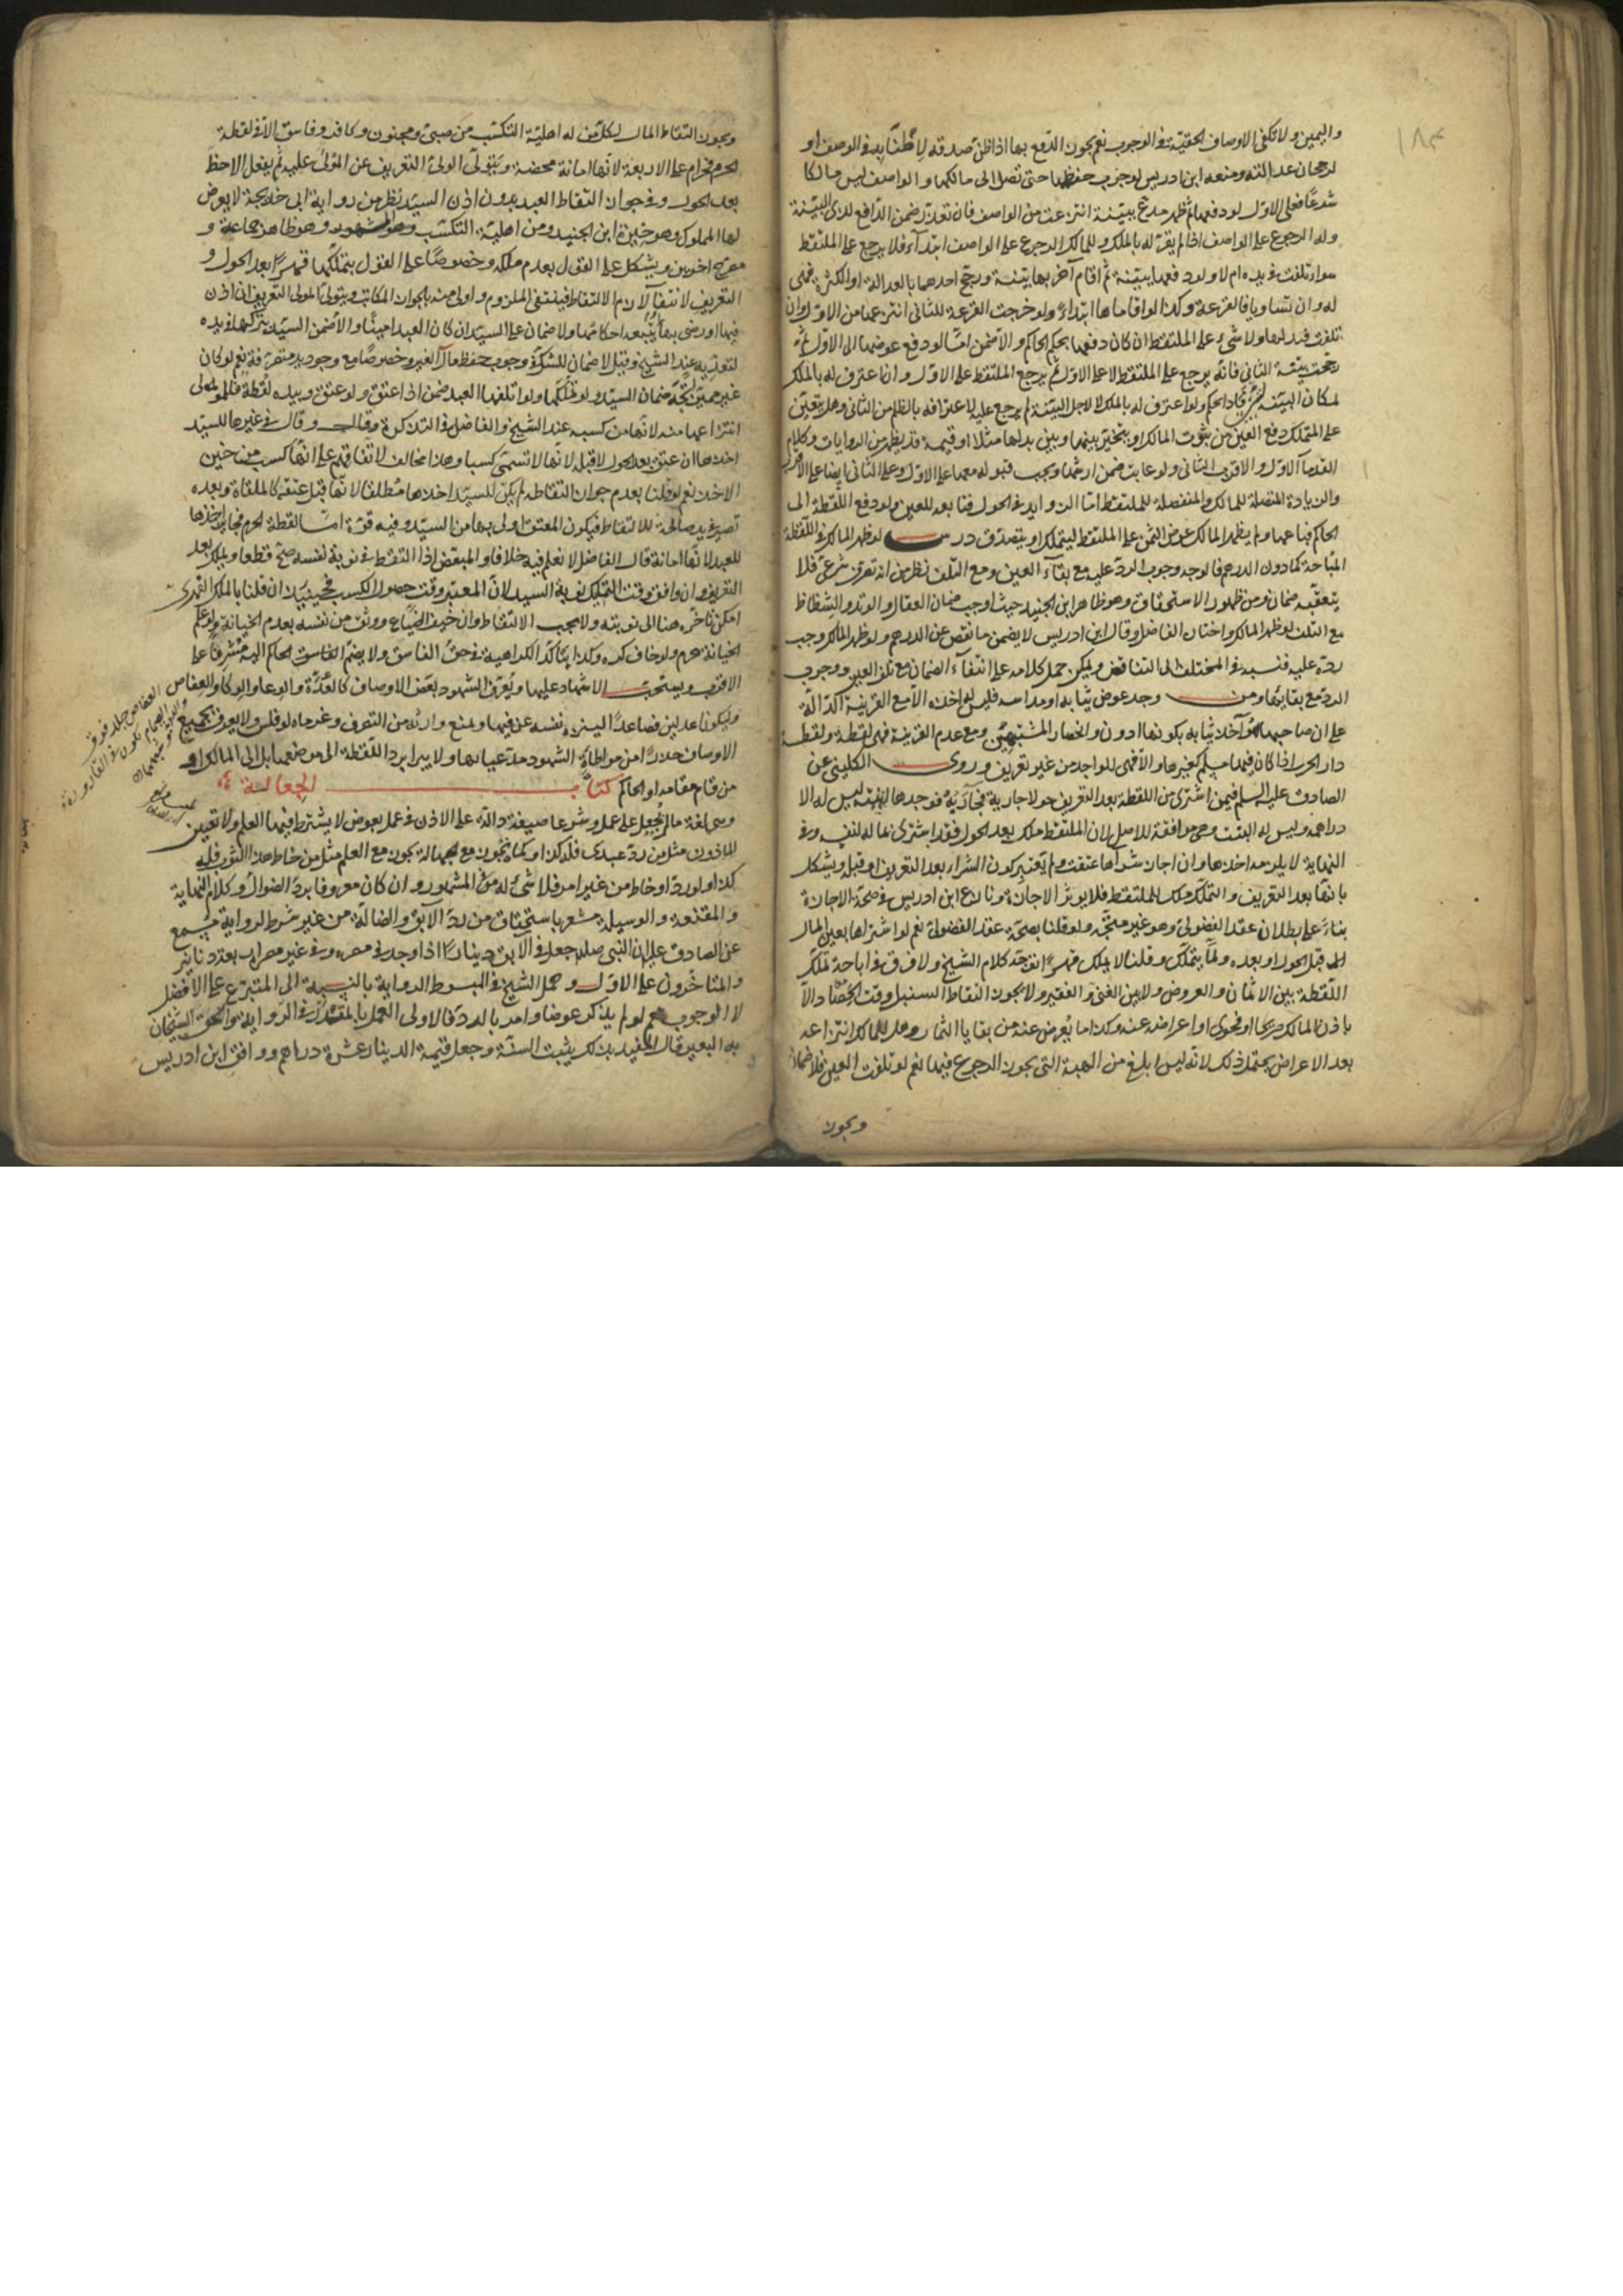 ١٨٣
واليمين ولا تكفى الاوصاف الخفية فى الوجوب نعم يجوز الدفع بها اذا ظن صدقه لاطنابه فى الوصف او
لرجحان عدالته ومنعه ابن ادريس لوجوب حفظها حتى تصل الى مالكها والواصف ليس مالكا
شرعا فعلى الاول لو دفعها ثم ظهر مدع ببينة انتزعت من الواصف فان تعذر ضمن الدافع لذى البينة
وله الرجوع على الواصف اذا لم يقر له بالملك وللمالك الرجوع على الواصف ابتداء فلا يرجع على الملتقط
سواء تلفت فى يده ام لا ولو دفعها ببينة ثم اقام آخر بها بينة ورجح احدهما بالعدالة او الكثرة فهى
له وان تساويا فالقرعة وكذا لو اقاماها ابتداء ولو خرجت القرعة للثانى انتزعها من الاول وان
تلفت فبدلها ولا شىء على الملتقط ان كان دفعها بحكم الحاكم والا ضمن امّا لو دفع عوضها الى الاول ثم
رجحت بينة الثانى فانه يرجع على الملتقط لا على الاول ثم يرجع الملتقط على الاول وان اعترف له بالملك
لمكان البينة لم يرجع عليه لاعترافه بالظلم من الثانى وهل يتعين
على المتملك دفع العين حين ثبوت المالك او يتخير بينها وبين بدلها مثلا او قيمة قد يظهر من الروايات وكلام
القدماء الاول والاقرب الثانى ولو عابت ضمن ارشها ويجب قبوله معها على الاول وعلى الثانى ايضا على الاقرب
والزيادة المتصلة للمالك والمنفصلة للملتقط امّا الزوايد فى الحول فتابعه للعين ولو دفع اللقطة الى
الحاكم فباعها ولم يظهر المالك عوض الثمن على الملتقط ليتملك او يتصدق درس لو ظهر المالك فى اللقطة
المباحة كما دون الدرهم فالوجه وجوب الرد عليه مع بقاء العين ومع التلف نظر من انه تصرف شرعى فلا
يتعقبه ضمان ومن ظهور الاستحقاق وهو ظاهر ابن الجنيد حيث اوجب ضمان العقال والوتد والشظاظ
مع التلف لو ظهر المالك واختاره الفاضل وقال ابن ادريس لا يضمن ما نقص عن الدرهم ولو ظهر المالك وجب
رده عليه فنسبه فى المختلف الى التناقض ويمكن حمل كلامه على انتفاء الضمان مع تلف العين ووجوب
الرد مع بقائها ومن وجد عوض ثيابه او مداسه فليس له اخذه الا مع القرينة الدالة
على ان صاحبها هو آخذ ثيابه بكونها ادون وانحصار المشتبهين ومع عدم القرينة فهى لقطة ولقطة
دار الحرب اذا كان فيها مسلم كغيرها والا فهى للواجد من غير تعريف وروى الكلينى عن
الصادق عليه السلم فيمن اشترى من اللقطة بعد التعريف حولا جارية فوجدها ابنته ليس له الا
دراهمه وليس له البنت وهى موافقة للاصل لان الملتقط ملك بعد الحول فقد اشترى بماله لنفسه وفى
النهاية لا يلزمه اخذها وان اجاز شراءها عتقت ولم يعتبر كون الشراء بعد التعريف او قبله ويشكل
بانها بعد التعريف والتملك ملك للملتقط فلا يؤثر الاجازة ونازع ابن ادريس فى صحة الاجازة
بناء على بطلان عقد الفضولى وهو غير متجه ولو قلنا بصحة عقد الفضولى نعم لو اشتراها بعين المال
اما قبل الحول او بعده ولما يتملك وقلنا لا يملك قهرا اتجه كلام الشيخ ولا فرق فى اباحة تملك
اللقطة بين الاثمان والعروض ولا بين الغنى والفقير ولا يجوز التقاط السنبل وقت الحصاد الا
باذن المالك صريحا او فحوى او اعراضه عنه وكذا ما يعرض عنه من بقايا الثمار وهل للمالك انتزاعه
بعد الاعراض يحتمل ذلك لانه ليس ابلغ من الهبة التى يجوز الرجوع فيها نعم لو تلفت العين فلا ضمان
ويجوز
ويجوز التقاط المال لكل من له اهلية التكسب من صبى ومجنون وكافر وفاسق الا فى لقطة
الحرم فحرام على الاربعة لانها امانة محضة ويتولى الولى التعريف عن المولى عليه ثم يفعل الاحظ
بعد الحول وفى جواز التقاط العبد بدون اذن السيد نظر من رواية ابى خديجة لا يعرض
لها المملوك وهو خيرة ابن الجنيد ومن اهلية التكسب وهو المشهور وهو ظاهر جماعة و
صريح اخرين ويشكل على القول بعدم ملكه وخصوصا على القول بتملكها قهرا بعد الحول و
التعريف لانتفاء لازم الالتقاط فينتفى الملزوم واولى منه بالجواز المكاتب ويتولى المولى التعريف ان اذن
فيها او رضى بها احكامها ولا ضمان على السيد ان كان العبد امينا والا ضمن السيد بتركها فى يده
لتعديه عند الشيخ وقيل لا ضمان للشك فى وجوب حفظ مال الغير وخصوصا مع وجود يد متصرفة نعم لو كان
غير مميز اتجه ضمان السيد ولو تملكها ولو اتلفها العبد ضمن اذا اعتق ولو عتق وبيده لقطة فللمولى
انتزاعها منه لانها من كسبه عند الشيخ والفاضل فى التذكرة وقال فى غيرها للسيد
اخذها ان عتق بعد الحول لا قبله لانها لا تسمى كسبا وهذا مخالف لاتفاقهم على انها كسب من حين
الاخذ نعم لو قلنا بعدم جواز التقاطه لم يكن للسيد اخذها مطلقا لانها قبل عتقه كالملقاة وبعده
تصير فى يد صالحة للالتقاط فيكون المعتق اولى بها من السيد وفيه قوة امّا لقطة الحرم فجايز اخذها
للعبد لانها امانة قال الفاضل لا نعلم فيه خلافا والمبعض اذا التقط فى نوبة نفسه صح قطعا ويملك بعد
التعريف وان وافق وقت التملك نوبة السيد لان المعتبر وقت حصول الكسب ان قلنا بالملك القهرى
امكن تأخره هنا الى نوبته ولا يجب الالتقاط وان خيف الضياع ووثق من نفسه بعدم الخيانة ولو علم
الخيانة حرم ولو خاف كره وكذا يتأكد الكراهية فى حق الفاسق ولا يضم الفاسق الحاكم اليه مشرفا على
الاقرب ويستحب الاشهاد عليها ويعرف الشهود بعض الاوصاف كالعدة والوعاء والوكاء والعفاص
وليكونا عدلين فصاعدا لينزه نفسه عن فيها ويمنع وارثه من التصرف وغرماه لو فلس ولا يعرف بجميع
الاوصاف حذرا من مواطاة الشهود مدعيا لها ولا يبرأ برد اللقطة الى موضعها بل الى المالك او
من قام مقامه او الحاكم كتاب الجعالة
وهى لغة ما يجعل على عمل وشرعا صيغة دالة على الاذن فى عمل بعوض لا يشترط فيها العلم ولا تعيين
الماذون مثل من رد عبدى فله كذا وكما تجوز مع الجهالة يجوز مع العلم مثل من خاط هذا الثوب فله
كذا ولو رد او خاط من غير امر فلا شىء له على المشهور وان كان معروفا برد الضوال وكلام النهاية
والمقنعة والوسيلة مشعر باستحقاق من رد الآبق والضالة من غير شرط لرواية مسمع
عن الصادق ان النبى جعل فى الآبق دينارا اذا وجد فى مصره وفى غير مصره اربعة دنانير
والمتاخرون على الاول وحمل الشيخ فى المبسوط الرواية بالنسبة الى المتبرع على الافضل
لا الوجوب نعم لو لم يذكر عوضا وامر بالرد فالاولى العمل بالمقدر فى الرواية والحق الشيخان
به البعير قال المفيد بذلك يثبت السنة وجعل قيمة الدينار عشرة دراهم ووافق ابن ادريس
العفاص جلد فوق
الصمام يكون فى القارورة